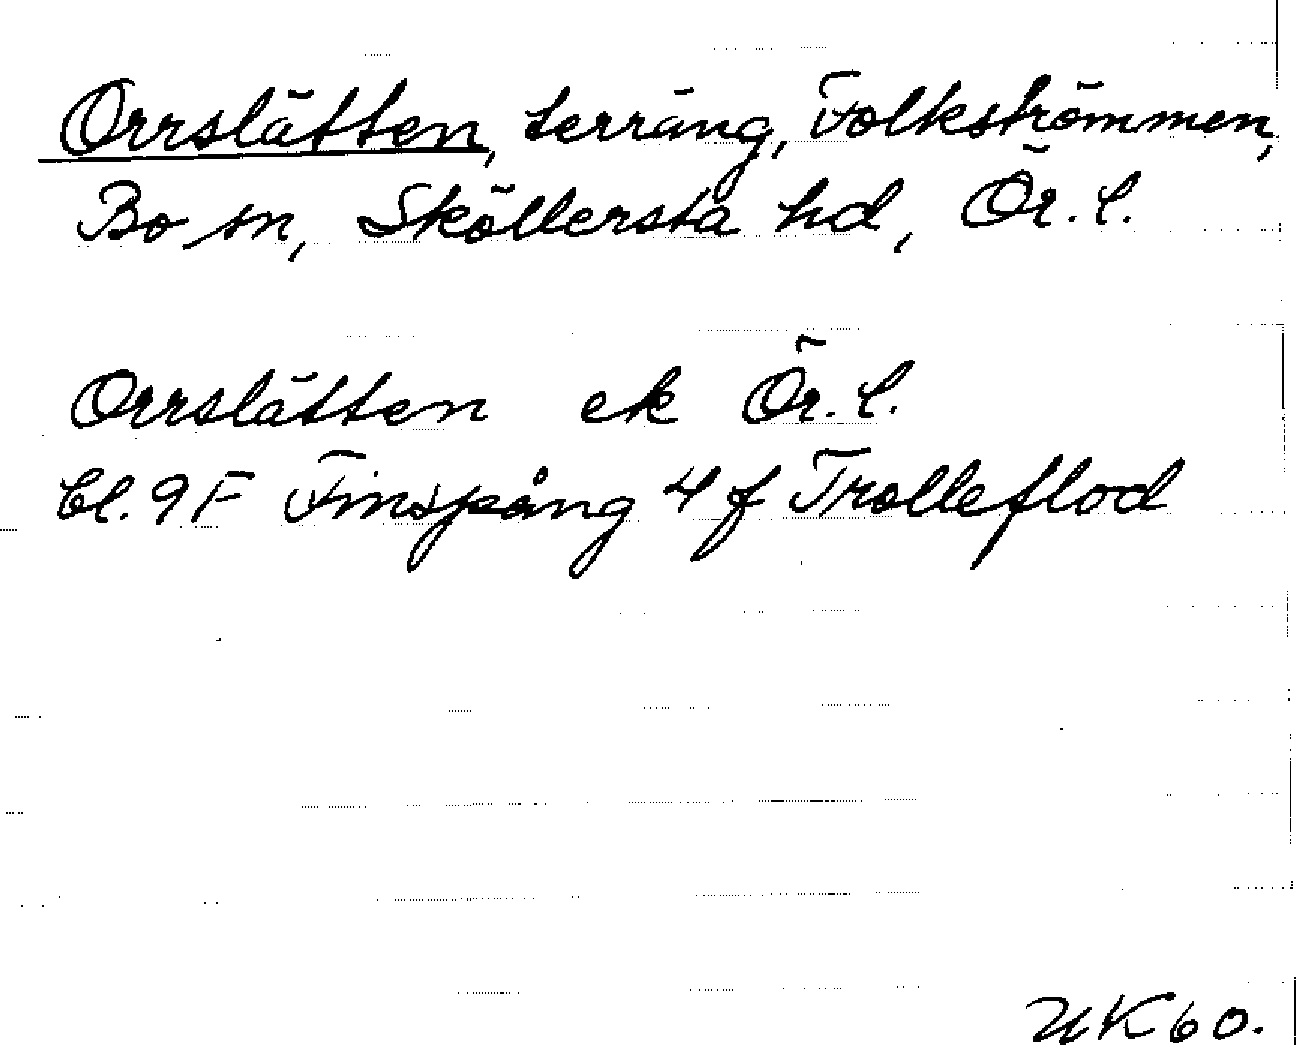 Orrslätten, terräng, Folkströmmen,
Bo sn, Sköllersta hd, Ör. l.
Orrslätten ek Ör. l.
bl. 9F Finspång 4 f Trolleflod
UK60.